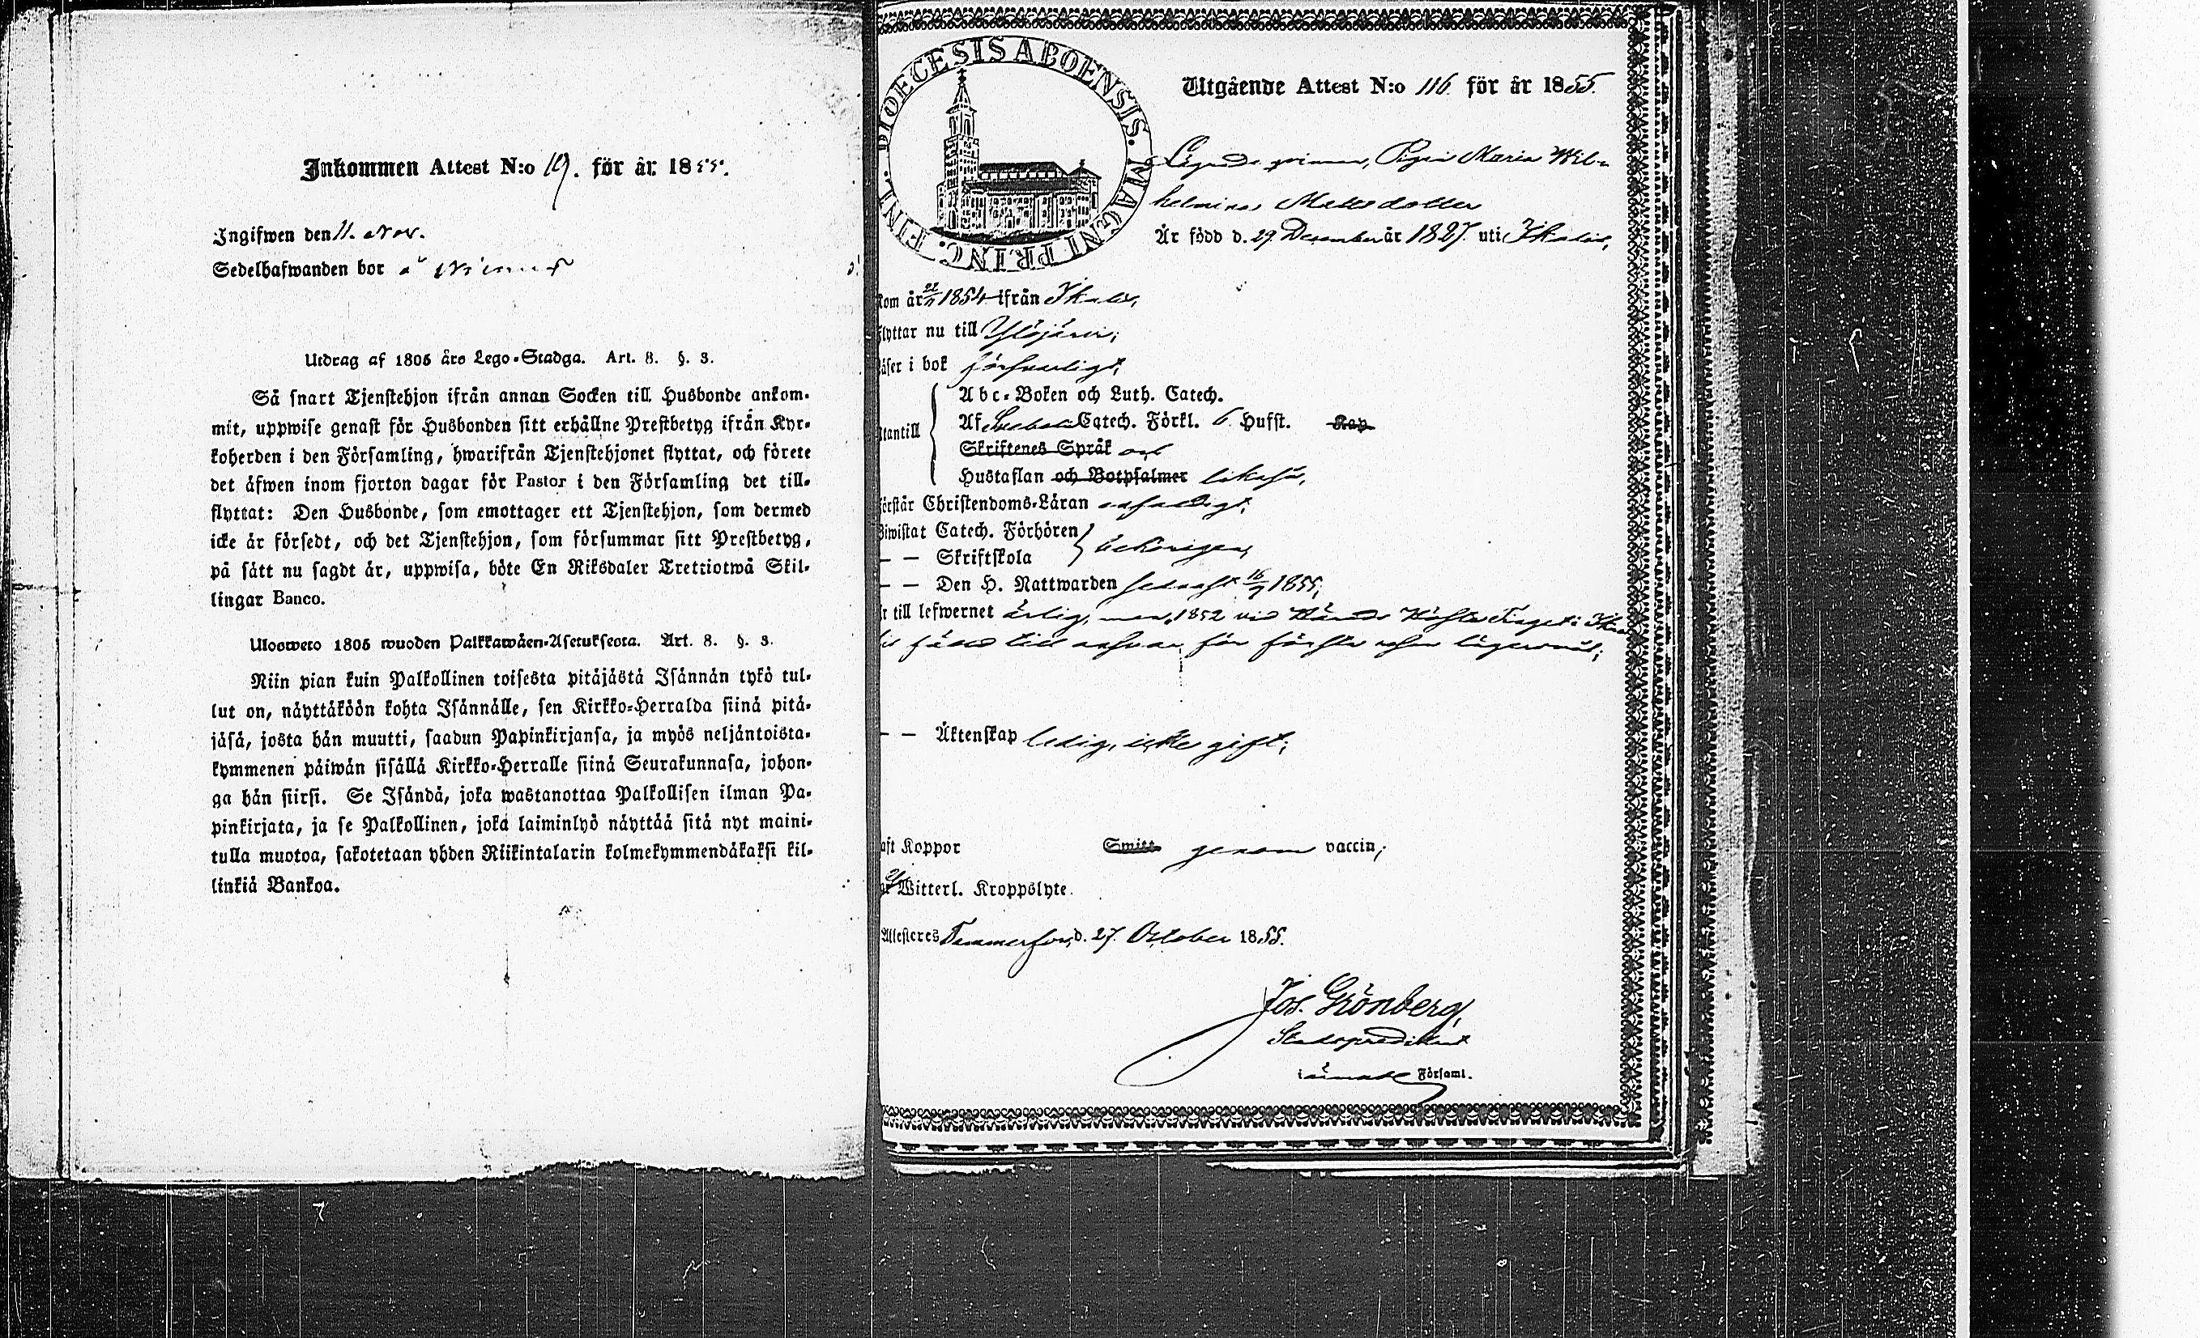 Inkommen Attest N:o 19. för år 1855.
Ingifwen den 11. Nov.
Sedelhafwanden bor å
Utdrag af 1805 års Lego-Stadga. Art. 8. §. 3.
Så snart Tjenstehjon ifrån annan Socken till Husbonde ankom-
mit, uppwise genast för Husbonden sitt erhållne Prestbetyg ifrån Kyr-
koherden i den Församling, hwarifrån Tjenstehjonet flyttat, och förete
det äfwen inom fjorton dagar för Pastor i den Församling det till-
flyttat: Den Husbonde, som emottager ett Tjenstehjon, som dermed
icke är försedt, och det Tjenstehjon, som försummar sitt Prestbetyg,
på sätt nu sagdt är, uppwisa, böte En Riksdaler Trettiotwå Skil-
lingar Banco.
Ulosweto 1805 wuoden Palkkawäen-Asetuksesta. Art. 8. §. 3.
Niin pian kuin Palkollinen toisesta pitäjästä Isännän tykö tul-
lut on, näyttäköön kohta Isännälle, sen Kirkko-Herralda siinä pitä-
jäsä, josta hän muutti, saadun Papinkirjansa, ja myös neljäntoista-
kymmenen päiwän sisällä Kirkko-Herralle siinä Seurakunnasa, johon-
ga hän siirsi. Se Isändä, joka wastanottaa Palkollisen ilman Pa-
pinkirjata, ja se Palkollinen, joka laiminlyö näyttää sitä nyt maini-
tulla muotoa, sakotetaan yhden Riikintalarin kolmekymmendäkaksi kil-
linkiä Bankoa.
DIOECESIS ABOENSIS. MAGNI PRINC. FINL.
Utgående Attest N:o 116 för år 1855.
Legodepigan, Pigan Maria Wil-
helmina Mattsdotter
Är född d. 29. December år 1827. uti Ikalis,
Kom år 22/11 1854 ifrån Ikalis,
flyttar nu till Ylöjärvi;
läser i bok försvarligt;
Utantill
Abc-Boken och Luth. Catech.
Af Svebeli Catech. Förkl. 6. Hufst. Kap.
Skriftenes Språk och
Hustaflan och Botpsalmer likaså,
förstår Christendoms-Läran enfaldigt;
Biwistat Catech. Förhören
— — Skriftskola
behörigen,
— — Den H. Nattwarden sednast 16/9 1855;
är till lefwernet ärlig, men 1852 vid Härads Höste Tinget i Ika-
lis fälld till ansvar för första resan lägersmål;
— — Äktenskap ledig, icke gift;
haft Koppor Smitt. genom vaccin;
Witterl. Kroppslyte.
Attesteres Tammerfors, d. 27. October 1855.
Jos. Grönberg,
Stadspredikant
i Församl.